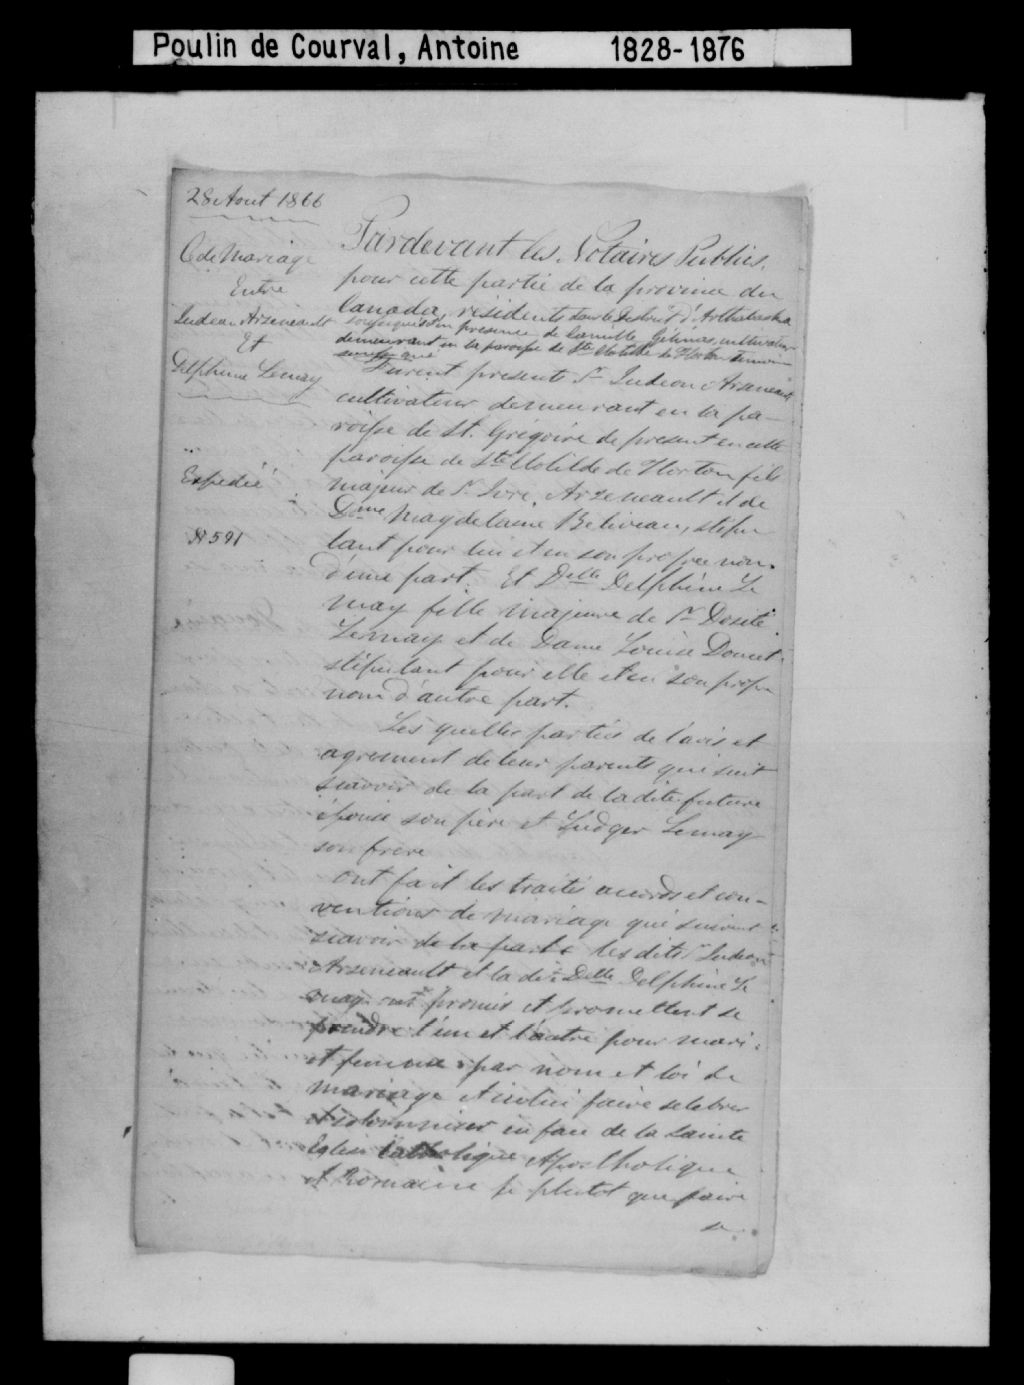 Poulin de Courval, Antoine 1828-1876
28 Aout 1866
C de Mariage
Entre
Judeau Arzeneault
Et
Delphine Lemay
Expedié
N 591
Pardevant les Notaires Publics,
pour cette partie de la province du
Canada, résidents dans le district d'Arthabaska
soussignés en presence de Camille Gélinas, cultivateur
demeurant en la paroisse de Ste Clotilde de Horton temoin
soussigné
Furent presents Sr Judeau Arseneault
cultivateur demeurant en la pa-
roisse de St. Grégoire de present en cette
paroisse de Ste Clotilde de Horton fils
majeur de Sr Arzeneault et de
Dame Magdelaine Béliveau, stipu
lant pour lui et en son propre nom
d'une part. Et Delle Delphine Le
may fille majeure de Sr Dosité
Lemay et de Dame Louise Doucet
stipulant pour elle et en son propre
nom d'autre part.
Les quelles parties de l'avis et
agrement de leur parents qui suit
scavoir de la part de la dite future
épouse son père et Ludger Lemay
son frère
ont fait les traités accords et con-
ventions de mariage qui suivent
scavoir de la parte les dits Sr Judeau
Arzeneault et la dite Delle Delphine Le
may ont promis et promettent se
prendre l'un et l'autre pour mari
et femme par nom et loi de
mariage et icelui faire selebrer
et solemniser en face de la Sainte
Eglise Catholique Apostholique
et Romaine si plutot que faire
se